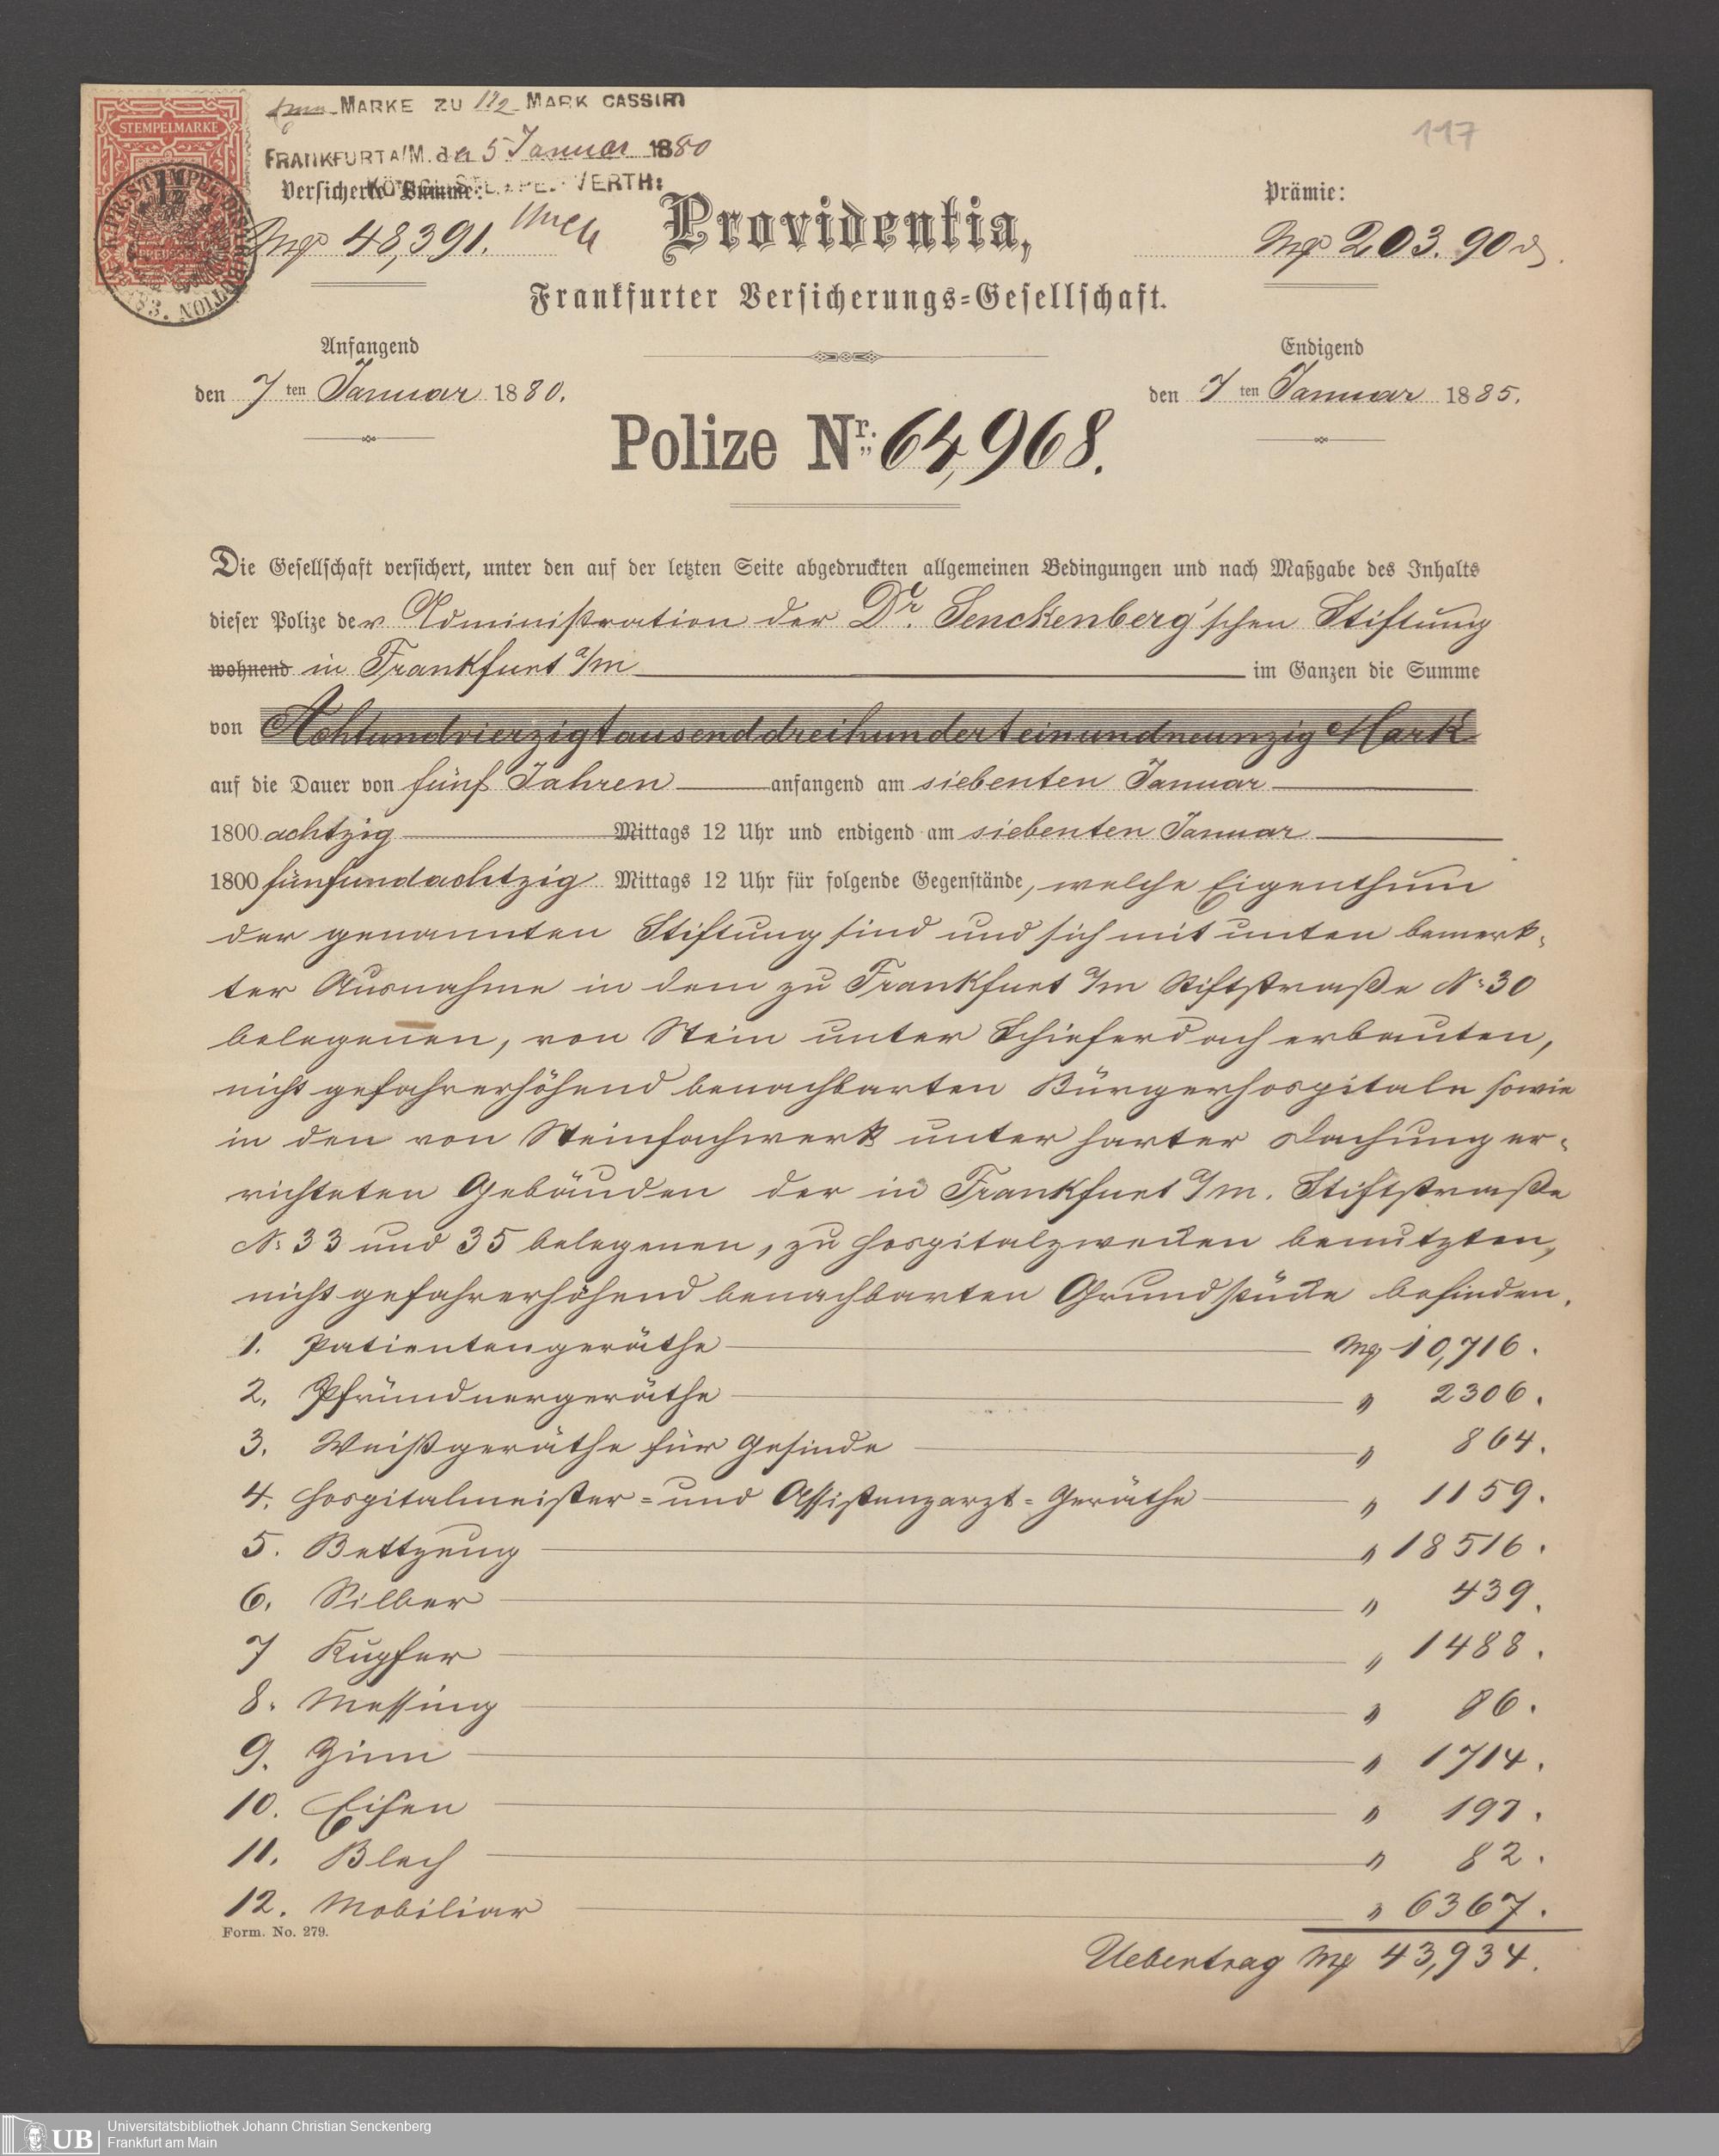 STEMPELMARKE
MARKE ZU 1 1/2 MARK CASSIRT
FRANKFURT A/M. den 5 Januar 1880
Versicherte Summe:
Mk 48,391.
117
Prämie:
Mk 203. 90 ₰.
Providentia,
Frankfurter Versicherungs-Gesellschaft.
Anfangend
den 7 ten Januar 1880.
Endigend
den 7 ten Januar 1885.
Polize Nr. 64,968.
Die Gesellschaft versichert, unter den auf der letzten Seite abgedruckten allgemeinen Bedingungen und nach Maßgabe des Inhalts
dieser Polize der Administration der Dr. Senckenberg'schen Stiftung
wohnend in Frankfurt a/m im Ganzen die Summe
von Achtundvierzigtausenddreihunderteinundneunzig Mark
auf die Dauer von fünf Jahren anfangend am siebenten Januar
1800 achtzig Mittags 12 Uhr und endigend am siebenten Januar
1800 fünfundachtzig Mittags 12 Uhr für folgende Gegenstände, welche Eigenthum
der genannten Stiftung sind und sich mit unten bemerk-
ter Ausnahme in dem zu Frankfurt a/m Stiftstraße No 30
belegenen, von Stein unter Schieferdach erbauten,
nicht gefahrerhöhend benachbarten Bürgerhospitale sowie
in den von Steinfachwerk unter harter Dachung er-
richteten Gebäuden der in Frankfurt a/m. Stiftstraße
No 33 und 35 belegenen, zu Hospitalzwecken benutzten,
nicht gefahrerhöhend benachbarten Grundstücke befinden.
1. Patientengeräthe Mk 10,716.
2. Pfründnergeräthe " 2306.
3. Weißgeräthe für Gesinde " 864.
4. Hospitalmeister- und Assistenzarzt-Geräthe " 1159.
5. Bettzeug " 18516.
6. Silber " 439.
7 Kupfer " 1488.
8. Messing " 86.
9. Zinn " 1714.
10. Eisen " 197.
11. Blech " 82.
12. Mobiliar " 6367.
Form. No. 279.
Uebertrag Mk 43,934.
UB
Universitätsbibliothek Johann Christian Senckenberg
Frankfurt am Main